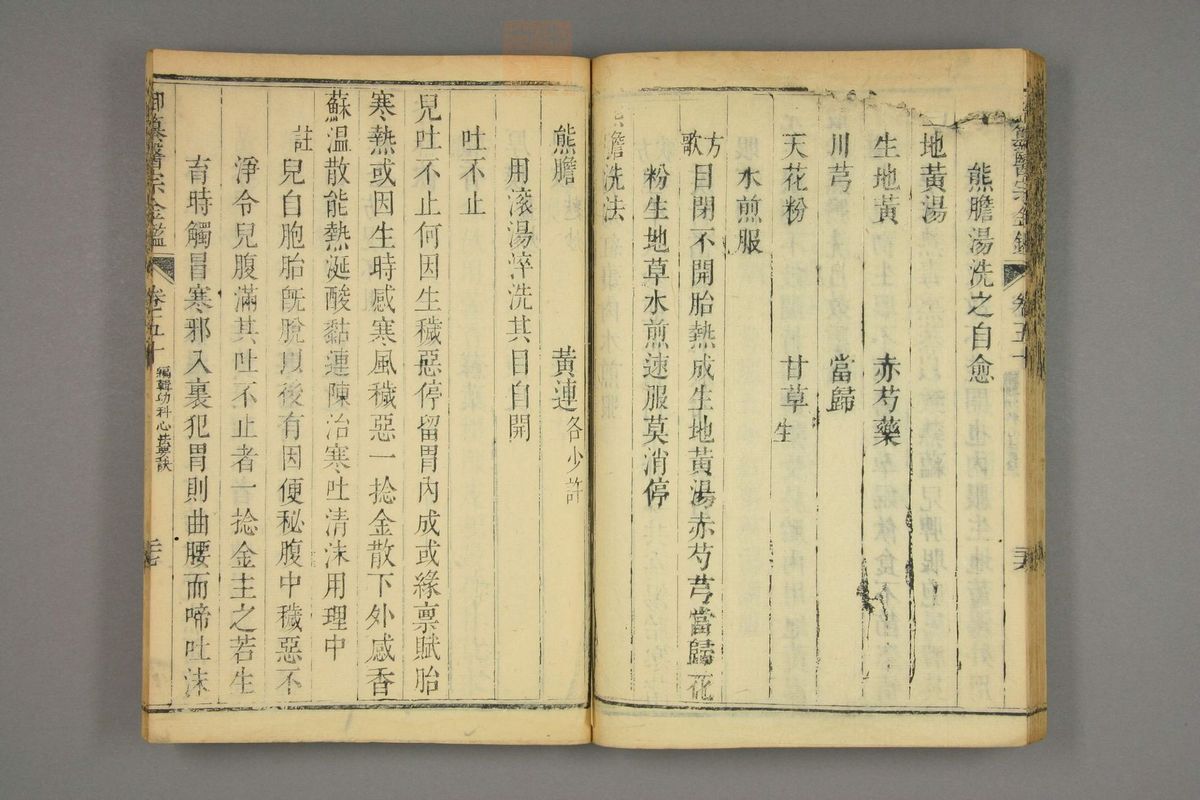 熊膽湯洗之自愈
地黃湯
生地黃 赤芍藥
川芎 當歸
天花粉 甘草生
水煎服
方歌 目閉不開胎熱成生地黃湯赤芍芎當歸花
粉生地草水煎速服莫消停
膽洗法
熊膽 黃連各少許
用滚湯淬洗其目自開
吐不止
兒吐不止何因生穢惡停留胃內成或緣禀賦胎
寒熱或因生時感寒風穢惡一捻金散下外感香
蘇温散能熱涎酸黏連陳治寒吐清沫用理中
註 兒自胞胎旣脫以後有因便秘腹中穢惡不
淨令兒腹滿其吐不止者一捻金主之若生
育時觸冒寒邪入裏犯胃則曲腰而啼吐沫
御纂醫宗金鑑 卷五十 編輯幼科心法要訣 三七